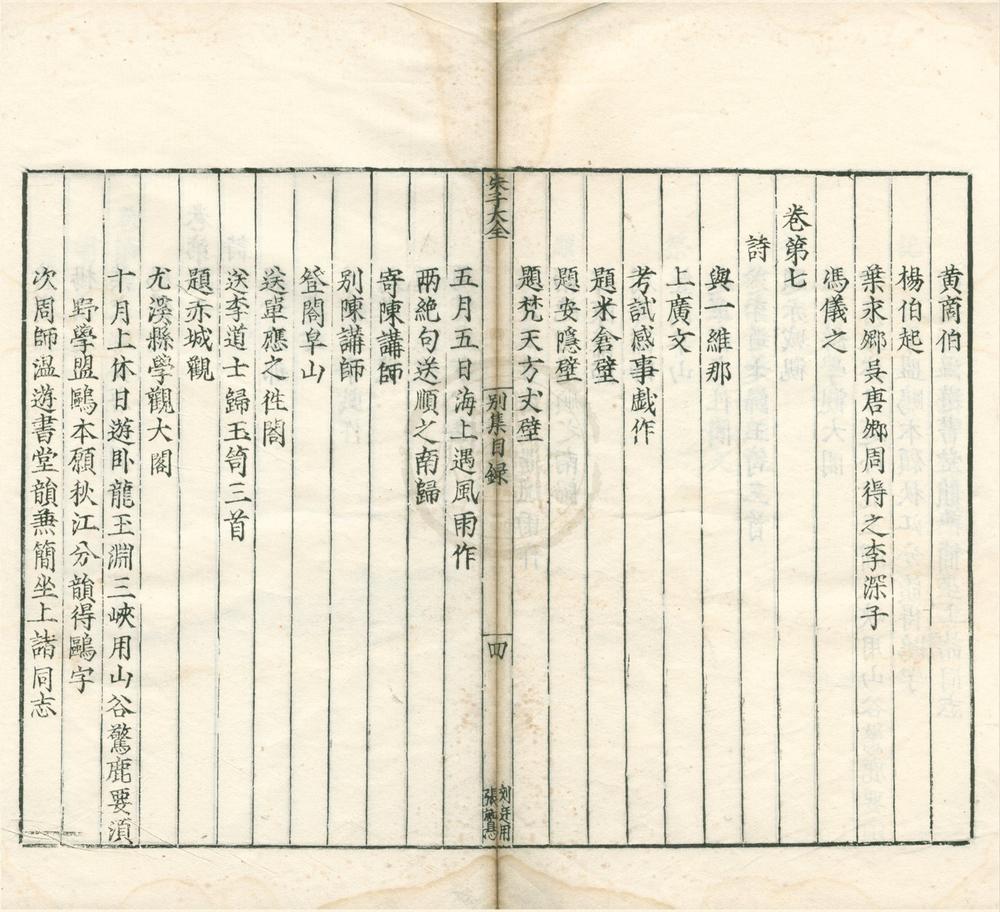 黄商伯
楊伯起
葉永卿吳唐卿周得之李深子
馮儀之
卷第七
詩
與一維那
上廣文
考試感事戲作
題米倉壁
題安隱壁
題梵天方丈壁
朱子大全
別集目録
四
五月五日海上遇風雨作
兩絶句送順之南歸
寄陳講師
別陳講師
登閤皁山
送單應之徃閤
送李道士歸玉笥三首
題赤城觀
尤溪縣學觀大閣
十月上休日遊卧龍玉淵三峽用山谷驚鹿要湏
野學盟鷗本願秋江分韻得鷗字
次周師温遊書堂韻𠔥簡坐上諸同志